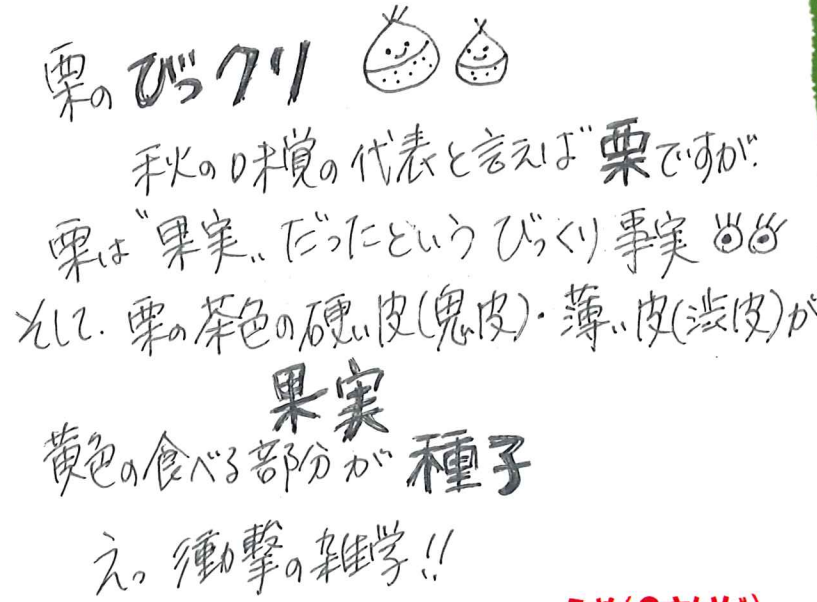 栗のびっクリ
秋の味覚の代表と言えば栗ですが、
栗は〝果実〟だったというびっくり事実
そして、栗の茶色の硬い皮(鬼皮)・薄い皮(渋皮)が
果実
黄色の食べる部分が種子
えっ衝撃の雑学!!